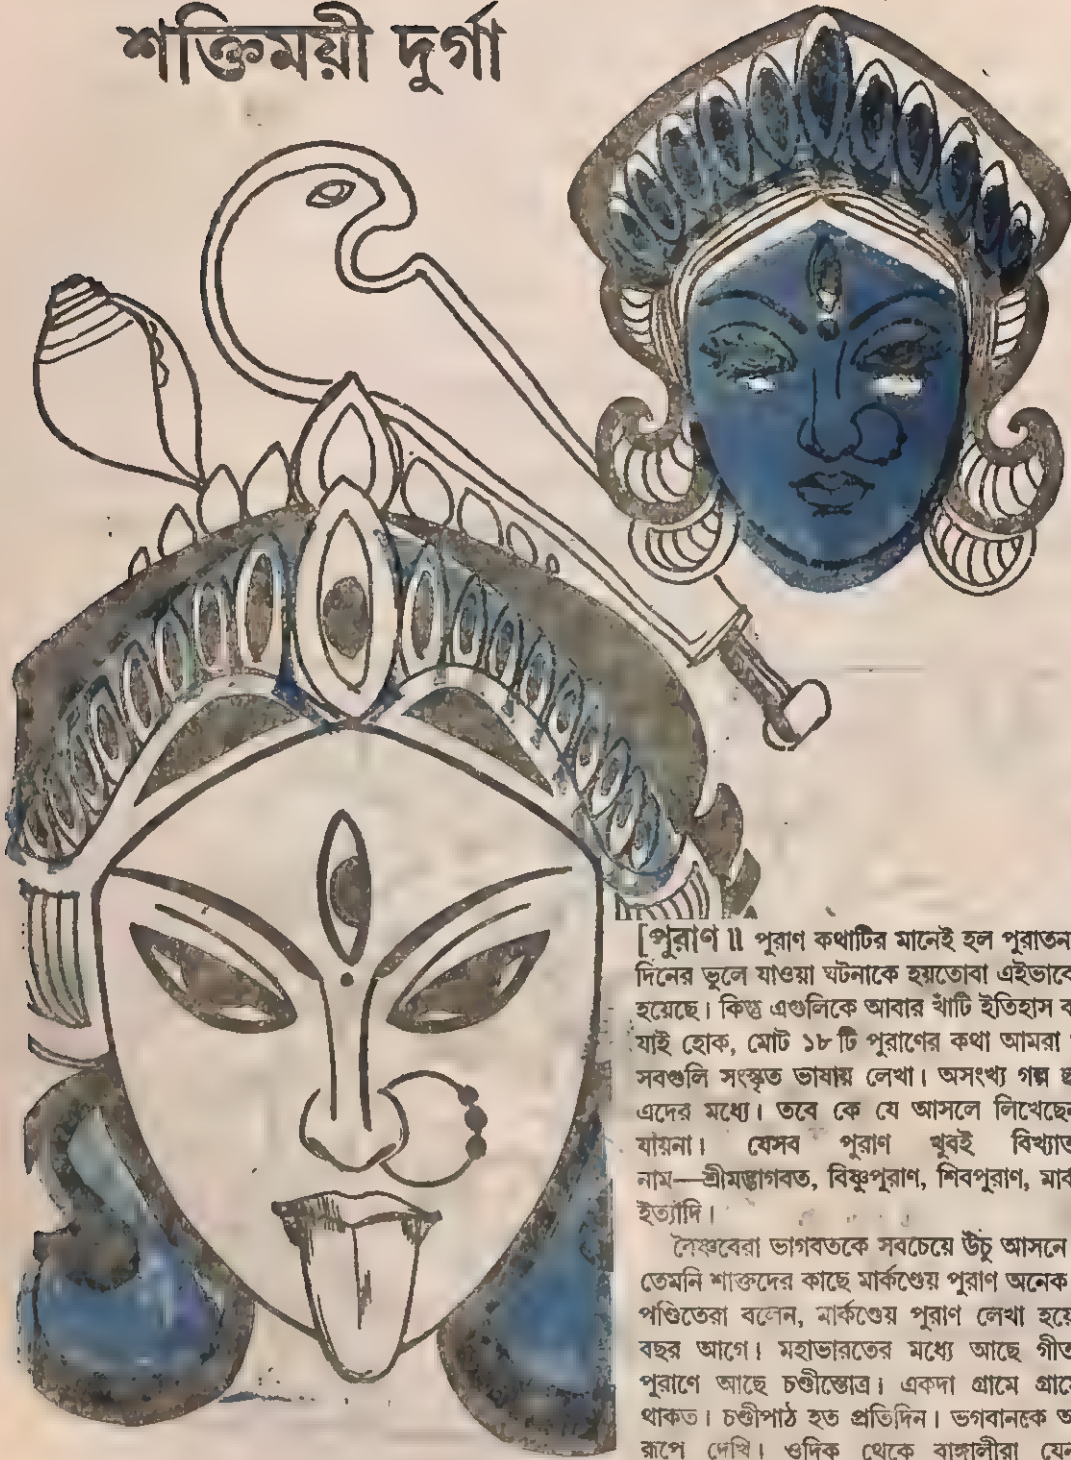 শক্তিময়ী দুর্গা
[পুরাণ ॥ পুরাণ কথাটির মানেই হল পুরাতন
দিনের ভুলে যাওয়া ঘটনাকে হয়তোবা এইভাবে
হয়েছে। কিন্তু এগুলিকে আবার খাঁটি ইতিহাস
যাই হোক, মোট ১৮টি পুরাণের কথা আমরা
সবগুলি সংস্কৃত ভাষায় লেখা। অসংখ্য গল্প
এদের মধ্যে। তবে কে যে আসলে লিখেছেন
যায়না। যেসব পুরাণ খুবই বিখ্যাত
নাম—শ্রীমদ্ভাগবত, বিষ্ণুপুরাণ, শিবপুরাণ, মার্ক
ইত্যাদি।
বৈষ্ণবেরা ভাগবতকে সবচেয়ে উঁচু আসনে
তেমনি শাক্তদের কাছে মার্কণ্ডেয় পুরাণ অনেক
পণ্ডিতেরা বলেন, মার্কণ্ডেয় পুরাণ লেখা হয়ে
বছর আগে। মহাভারতের মধ্যে আছে গীত
পুরাণে আছে চণ্ডীস্তোত্র। একদা গ্রামে গ্রামে
থাকত। চণ্ডীপাঠ হত প্রতিদিন। ভগবানকে
রূপে দেখি। ওদিক থেকে বাঙ্গালীরা যেন